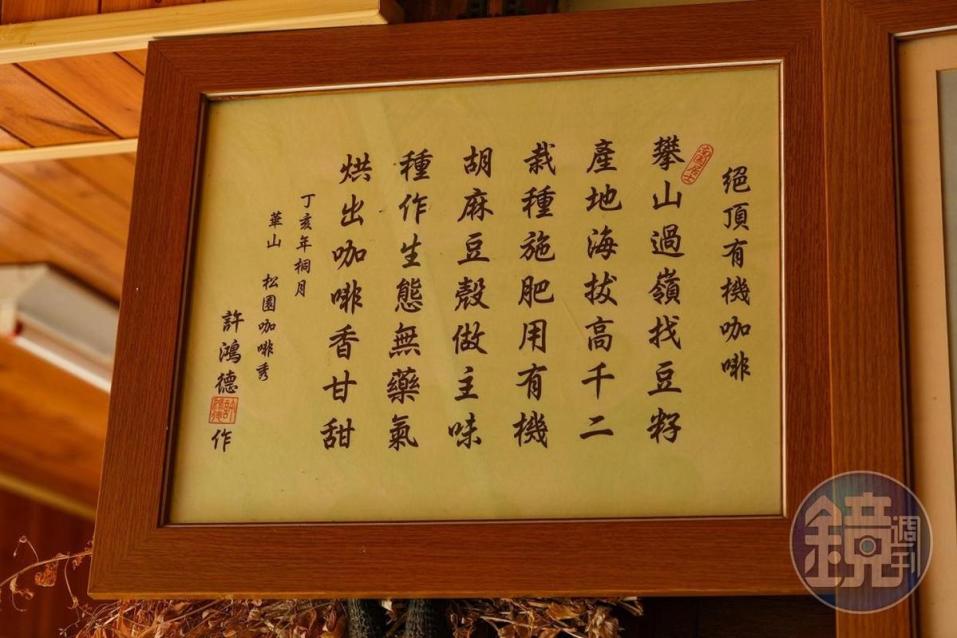 絕頂有機咖啡
攀山過嶺找豆籽
產地海拔高千二
栽種施肥用有機
胡麻豆殼做主味
種作生態無藥氣
烘出咖啡香甘甜
丁亥年桐月
華山 松園咖啡秀
許鴻德 作
鏡週刊